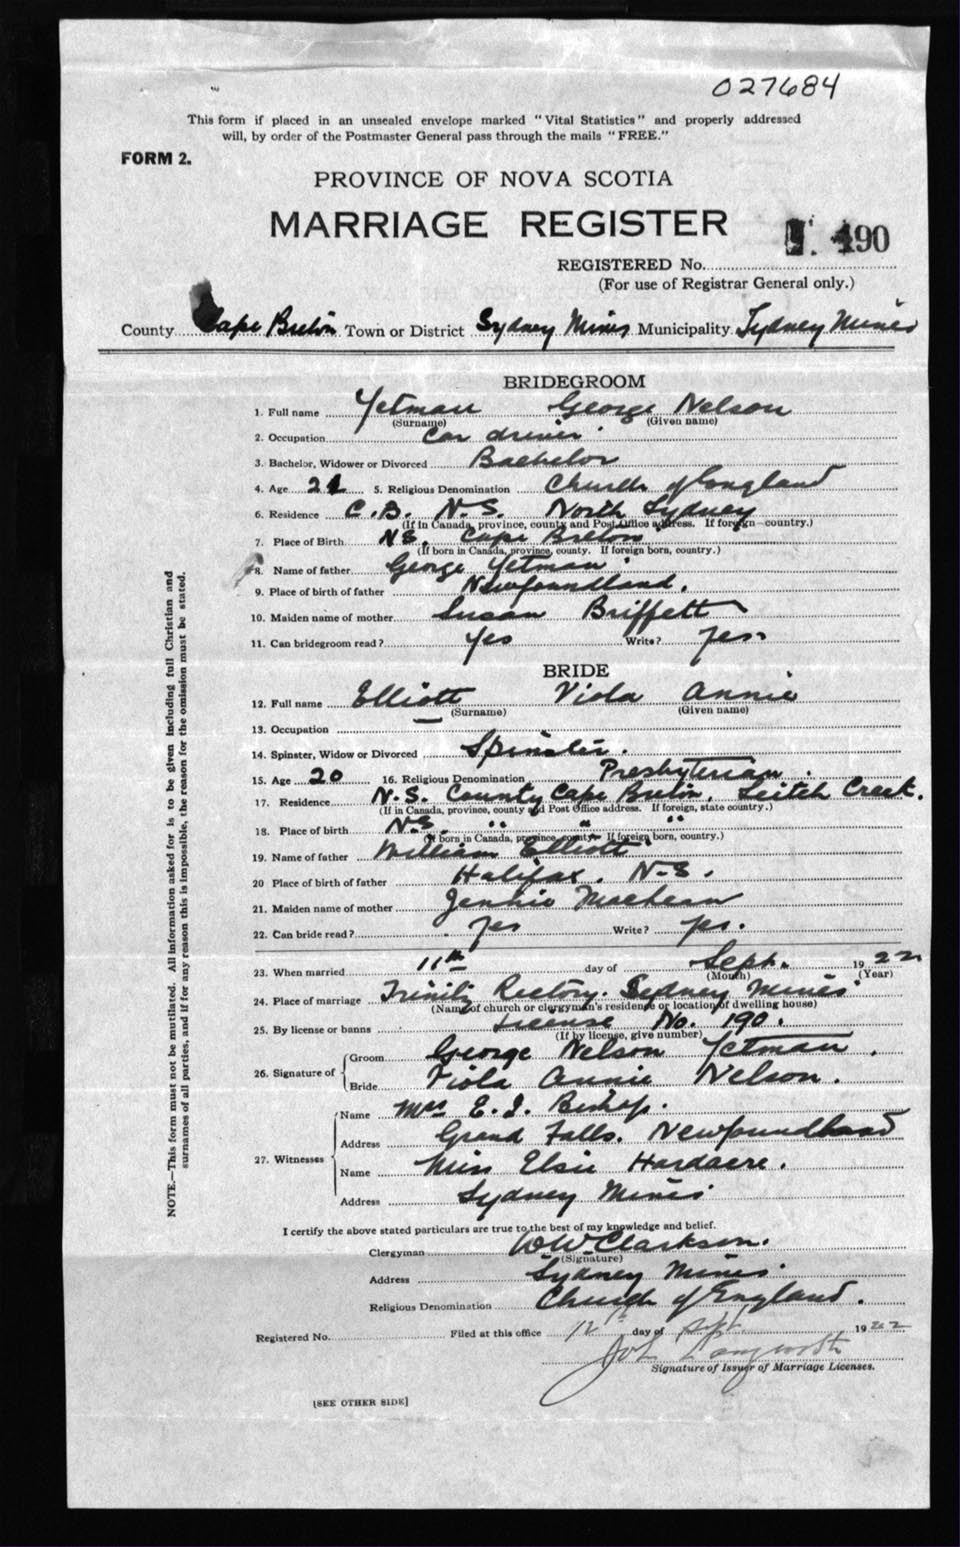 027684
This form if placed in an unsealed envelope marked "Vital Statistics" and properly addressed
will, by order of the Postmaster General pass through the mails "FREE."
FORM 2.
PROVINCE OF NOVA SCOTIA
MARRIAGE REGISTER
190
REGISTERED No.
(For use of Registrar General only.)
County Cape Breton Town or District Sydney Mines Municipality Sydney Mines
BRIDEGROOM
1. Full name Yetman George Nelson
(Surname) (Given name)
2. Occupation Car driver
3. Bachelor, Widower or Divorced Bachelor
4. Age 21 5. Religious Denomination Church of England
6. Residence C.B. N.S. North Sydney
(If in Canada, province, county and Post Office address. If foreign—country.)
7. Place of Birth NS. Cape Breton
(If born in Canada, province, county. If foreign born, country.)
8. Name of father George Yetman
9. Place of birth of father Newfoundland.
10. Maiden name of mother Susan Briffett
11. Can bridegroom read? Yes Write? yes
BRIDE
12. Full name Elliott Viola Annie
(Surname) (Given name)
13. Occupation —
14. Spinster, Widow or Divorced Spinster.
15. Age 20 16. Religious Denomination Presbyterian.
17. Residence N.S. County Cape Breton, Leitch Creek.
(If in Canada, province, county and Post Office address. If foreign, state country.)
18. Place of birth N.S. " " "
(If born in Canada, province, county. If foreign born, country.)
19. Name of father William Elliott
20 Place of birth of father Halifax. N-S.
21. Maiden name of mother Jennie MacLean
22. Can bride read? yes Write? yes.
23. When married 11th day of Sept. 1922
(Month) (Year)
24. Place of marriage Trinity Rectory. Sydney Mines
(Name of church or clergyman's residence or location of dwelling house)
25. By license or banns License No. 190.
(If by license, give number)
26. Signature of Groom George Nelson Yetman.
Bride Viola Annie Nelson.
27. Witnesses
Name Mrs E. J. Bishop.
Address Grand Falls. Newfoundland
Name Miss Elsie Hardacre.
Address Sydney Mines
I certify the above stated particulars are true to the best of my knowledge and belief.
Clergyman W W Clarkson.
(Signature)
Address Sydney Mines
Religious Denomination Church of England.
Registered No. Filed at this office 12th day of Sept. 1922
Signature of Issuer of Marriage Licenses.
[SEE OTHER SIDE]
NOTE.—This form must not be mutilated. All information asked for is to be given including full Christian and
surnames of all parties, and if for any reason this is impossible, the reason for the omission must be stated.